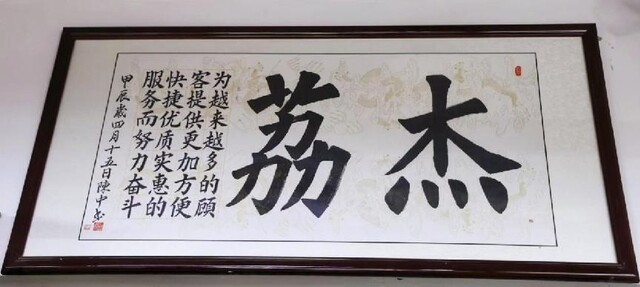 杰荔
为越来越多的顾
客提供更加方便
快捷优质实惠的
服务而努力奋斗
甲辰岁四月十五日陳中书